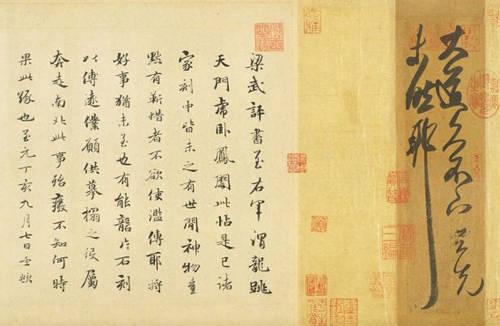 大道久不下与先
未然耶
梁武評書至右軍謂龍跳
天門虎卧鳳閣此帖是已諸
家刻中皆未之有世間神物豈
默有靳惜者不欲使濫傳耶將
好事猶未至也有能礱片石刻
以傳遠僕願供摹搨之役屬
奔走南北此事殆癈不知何時
果此緣也至元丁亥九月七日